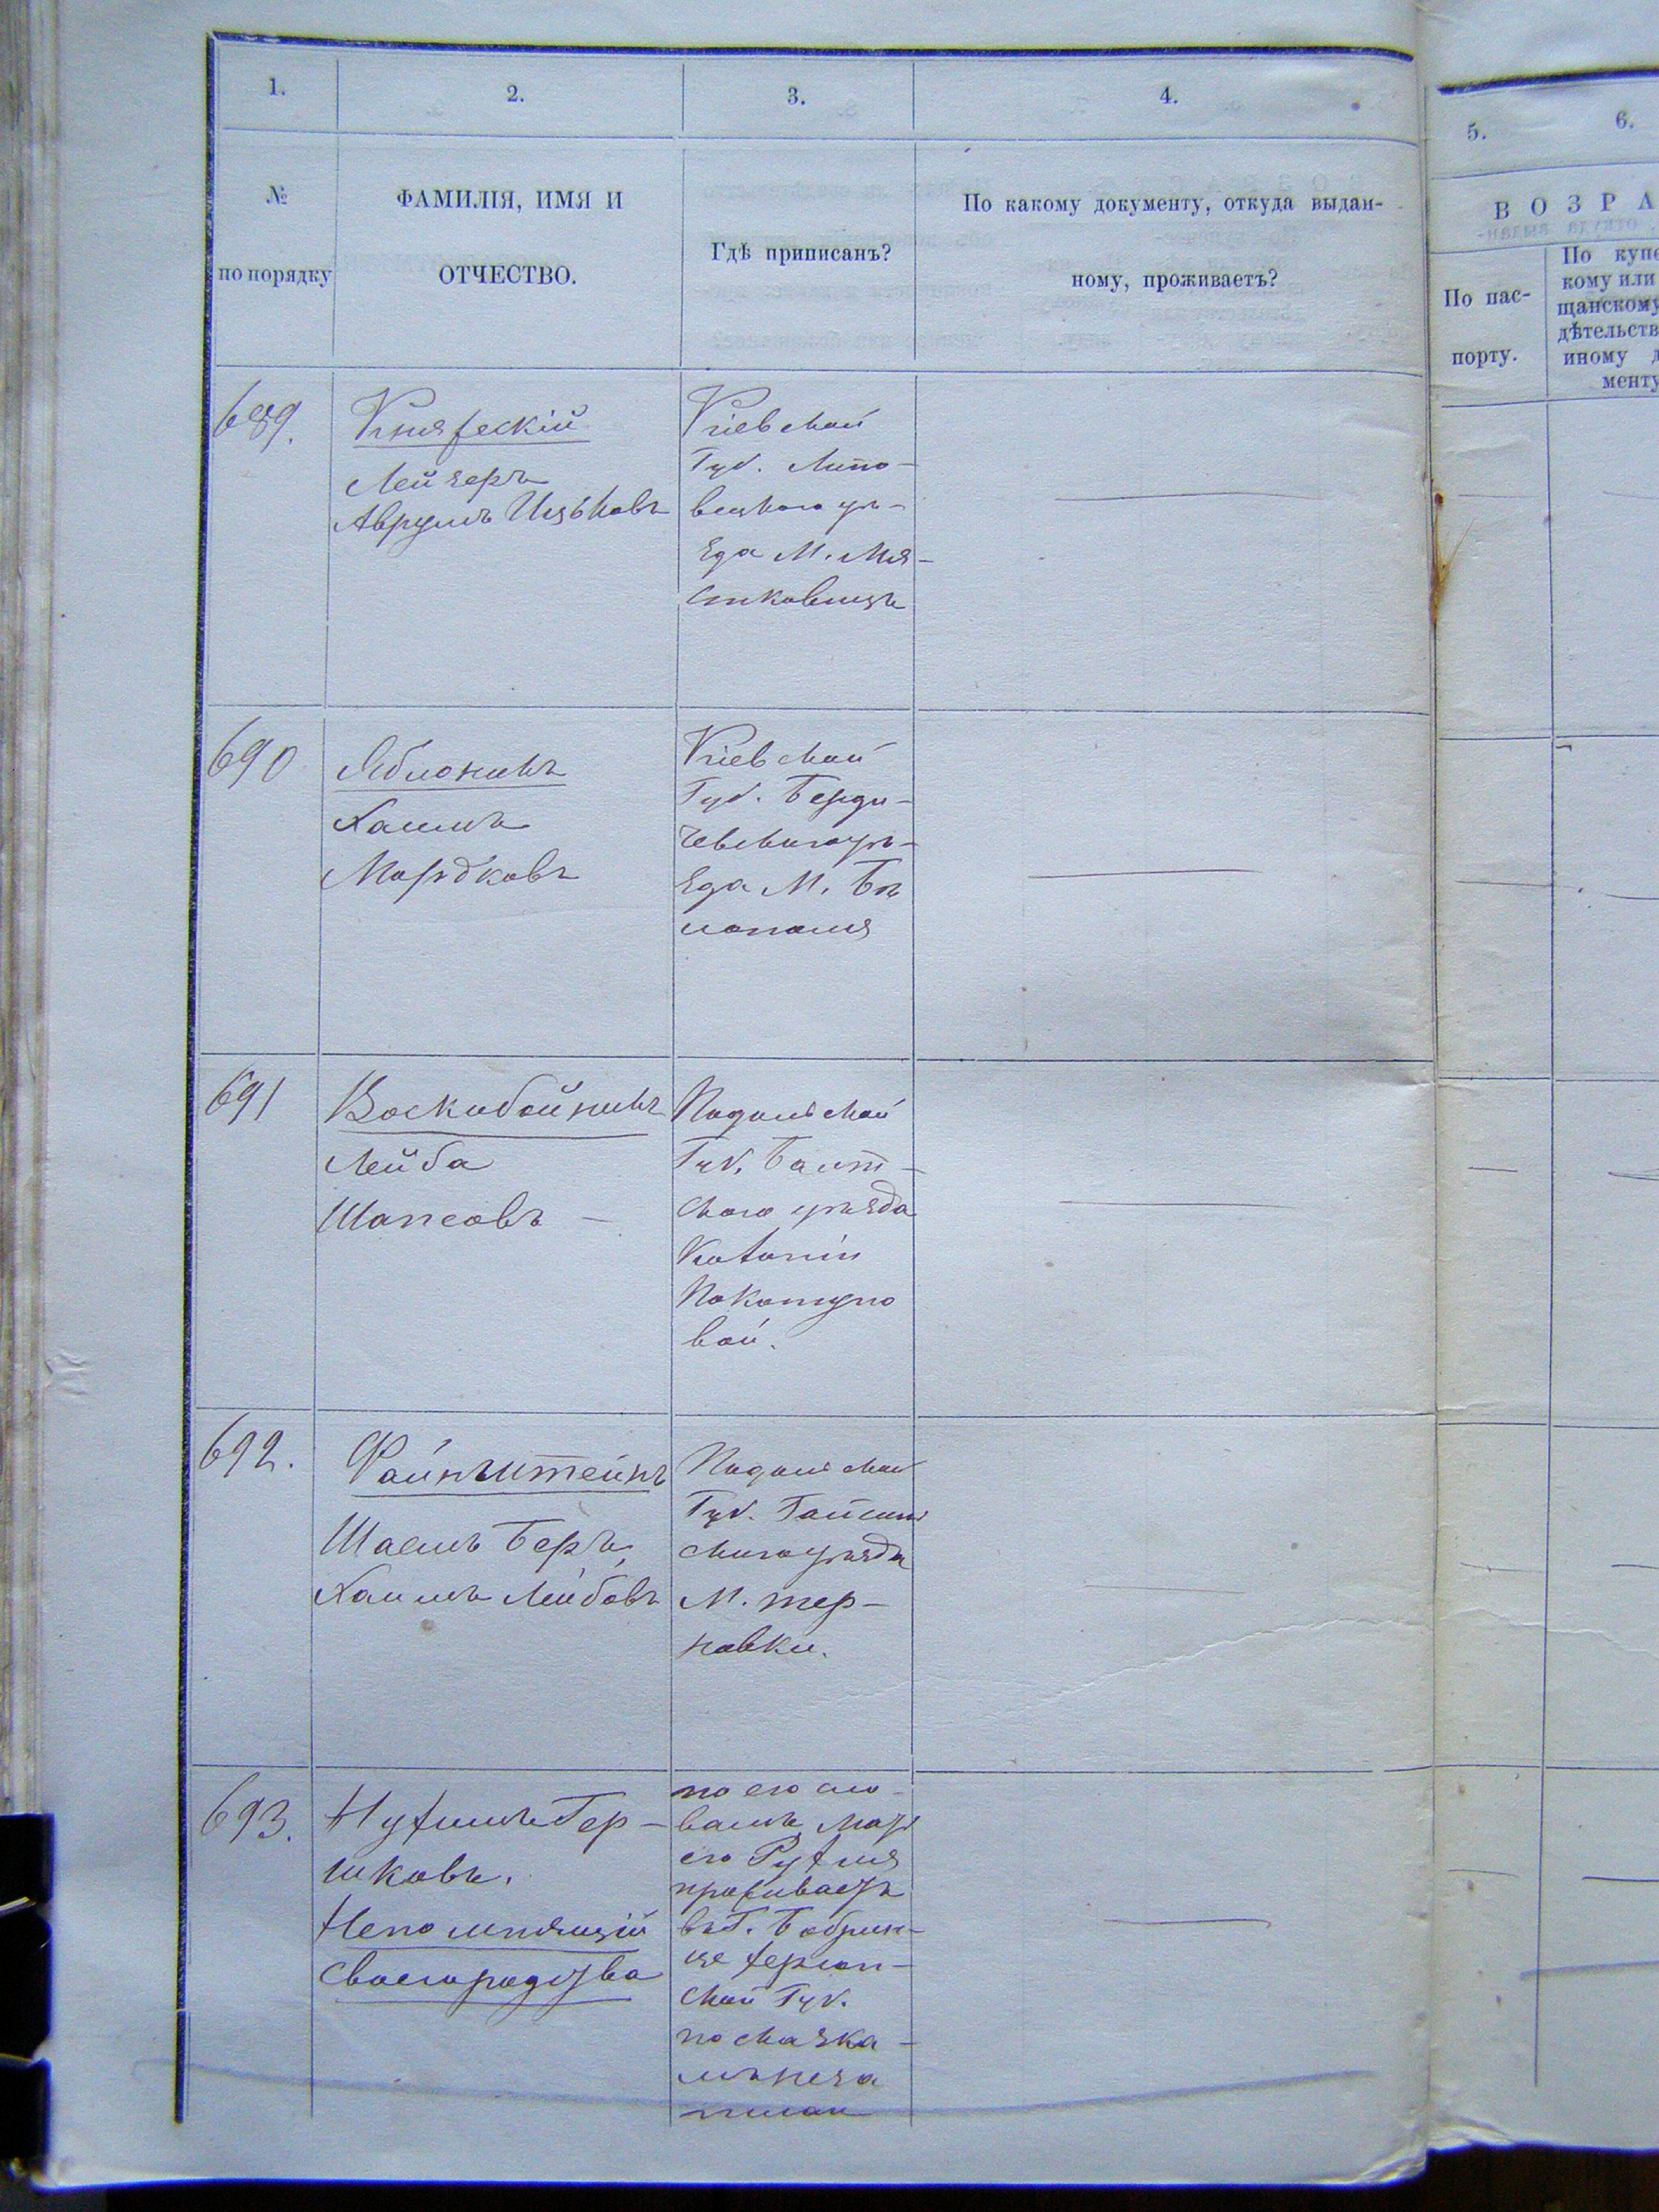 1.
2.
3.
4.
№
по порядку
ФАМИЛІЯ, ИМЯ И
ОТЧЕСТВО.
Гдѣ приписанъ?
По какому документу, откуда выдан-
ному, проживаетъ?
689.
Княжескій
Лейзеръ
Аврумъ Ицьковъ
Кіевской
Губ. Липо-
вецкаго уѣ-
зда М. Мя-
стковицъ
690
Яблоникъ
Хаимъ
Мордковъ
Кіевской
Губ. Берди-
чевскаго уѣ-
зда М. Бѣ
лополя
691
Воскобойникъ
Лейба
Шапсовъ
Подольской
Губ. Балт-
скаго уѣзда
Колоніи
Покотило
вой.
692.
Файнштейнъ
Шаемъ Беръ
Хаимъ Лейбовъ
Подольской
Губ. Гайсин
скаго уѣзда
М. Тер-
новки.
693.
Нухимъ Гер-
шковъ.
Непомнящій
своего родства
по его сло-
вамъ мать
его Рухля
проживаетъ
въ г. Бобрин-
це Херсон-
ской Губ.
по сказка-
мъ не за
писан
5.
6.
ВОЗРА
По пас-
порту.
По купе
кому или
щанскому
дѣтельств
иному д
менту